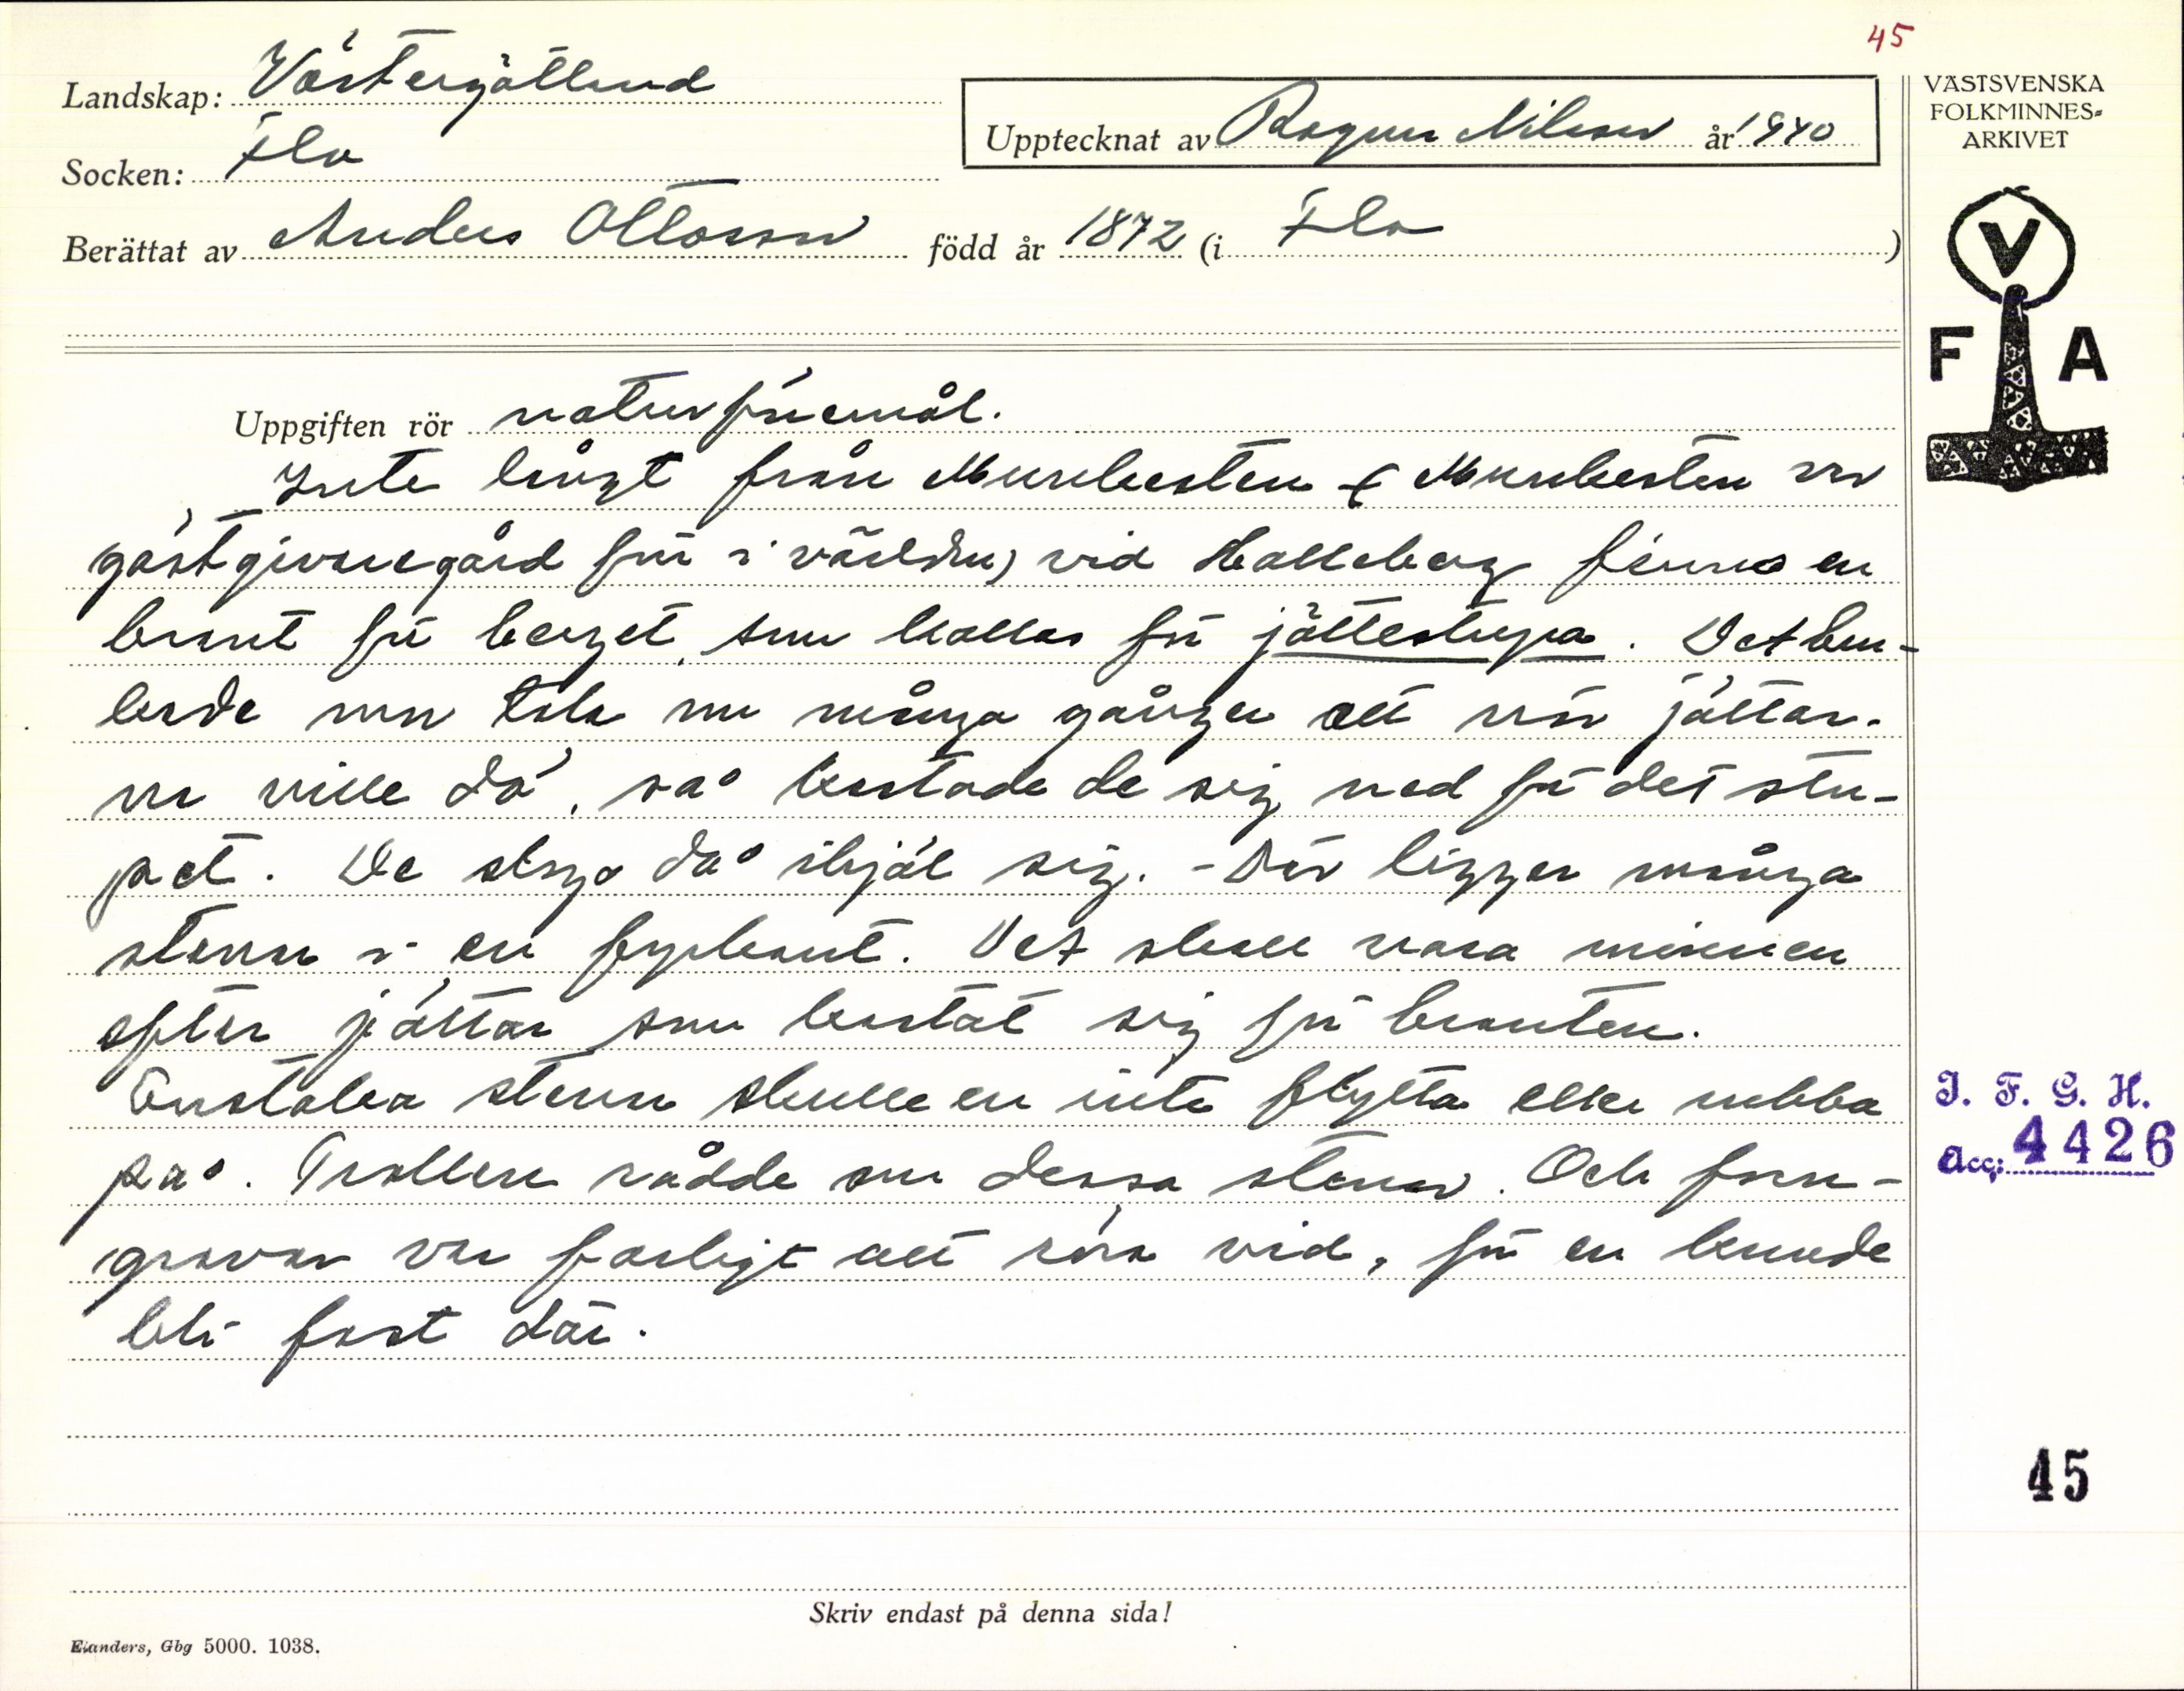 45
Landskap: Västergötland
Upptecknat av Ragnar Nilsson år 1940
VÄSTSVENSKA
FOLKMINNES=
ARKIVET
Socken: Flo
Berättat av Anders Ottosson född år 1872 (i Flo )
V
F A
Uppgiften rör naturföremål.
Inte långt från Munkesten (Munkesten var
gästgivaregård för i världen) vid Halleberg finns en
brant för berget, som kallas för jättestupa. Det bru-
kade mor tala om många gånger att när jättar-
na ville dö, så kastade de sig ned för det stu-
pet. De slogo då ihjäl sig. - Där ligger många
stenar i en fyrkant. Det skall vara minnen
efter jättar som kastat sig för branten.
Enstaka stenar skulle en inte flytta eller rubba
på. Trollen rådde om dessa stenar. Och forn-
gravar var farligt att röra vid, för en kunde
bli fast där.
I. F. G. H.
Acc: 4426
45
Skriv endast på denna sida!
Elanders, Gbg 5000. 1038.